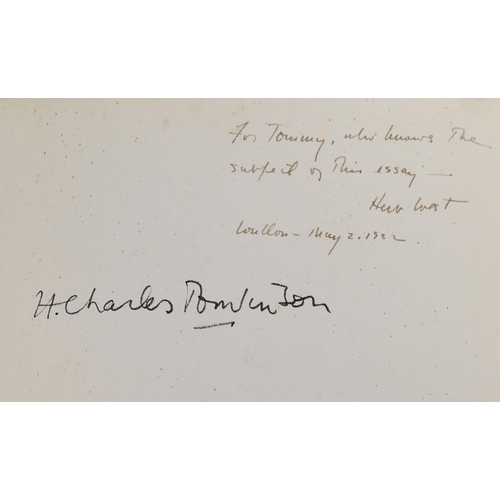 For Tommy, who knows the
subject of this essay —
Herb West
London – May 2. 1932.
H. Charles Tomlinson